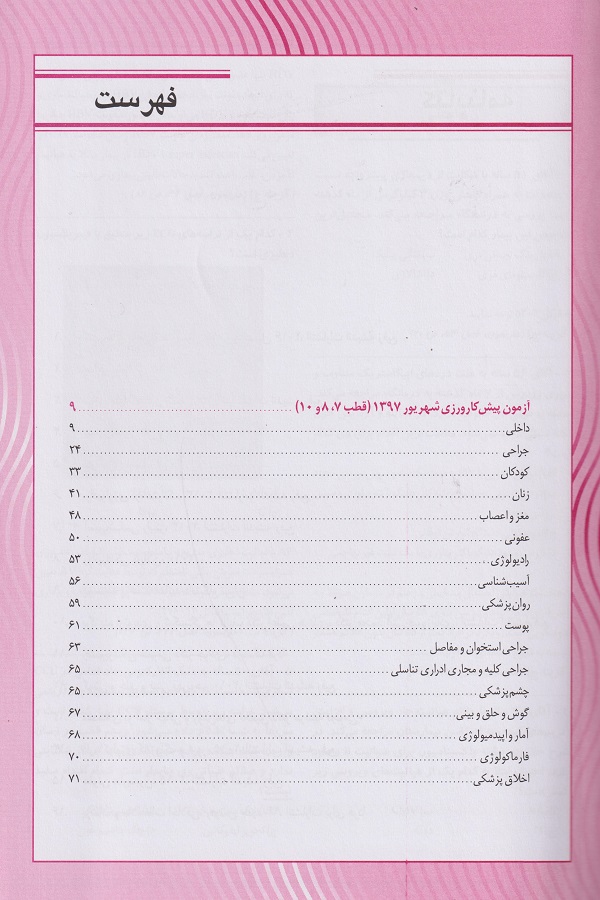 فهرست
آزمون پیش‌کارورزی شهریور ۱۳۹۷ (قطب ۷، ۸ و ۱۰) ........ ۹
داخلی ........ ۹
جراحی ........ ۲۴
کودکان ........ ۳۳
زنان ........ ۴۱
مغز و اعصاب ........ ۴۸
عفونی ........ ۵۰
رادیولوژی ........ ۵۳
آسیب‌شناسی ........ ۵۶
روان‌پزشکی ........ ۵۹
پوست ........ ۶۱
جراحی استخوان و مفاصل ........ ۶۳
جراحی کلیه و مجاری ادراری تناسلی ........ ۶۵
چشم‌پزشکی ........ ۶۵
گوش و حلق و بینی ........ ۶۷
آمار و اپیدمیولوژی ........ ۶۸
فارماکولوژی ........ ۷۰
اخلاق پزشکی ........ ۷۱